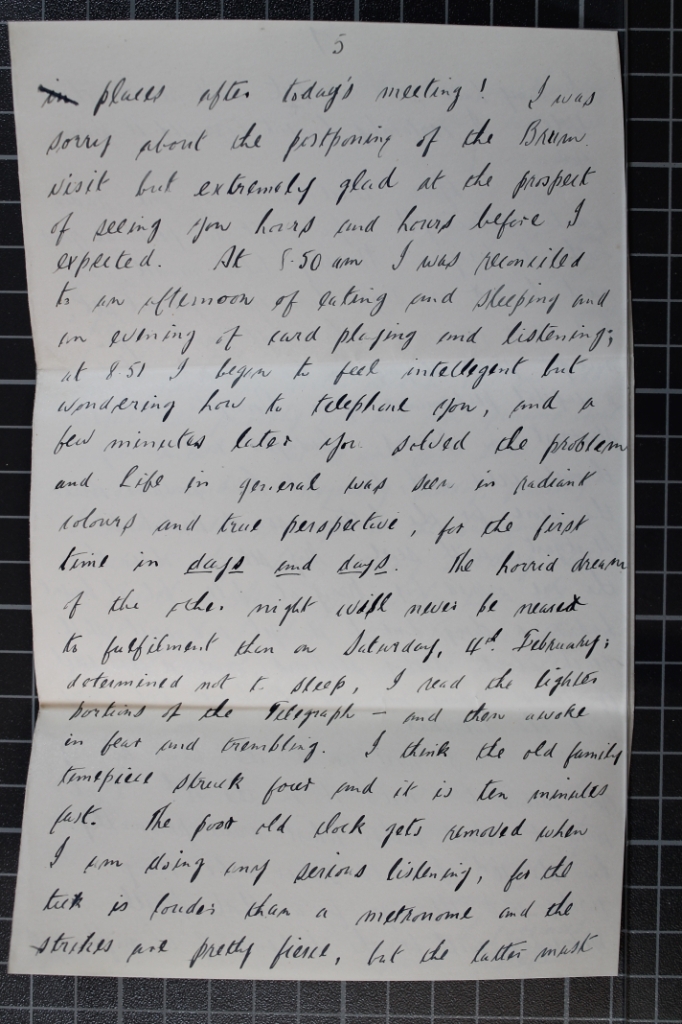 5
in places after today's meeting! I was
sorry about the postponing of the Brum.
visit but extremely glad at the prospect
of seeing you hours and hours before I
expected. At 8.50 am I was reconciled
to an afternoon of eating and sleeping and
an evening of card playing and listening;
at 8 51 I began to feel intellegent but
wondering how to telephone you, and a
few minutes later you solved the problem
and Life in general was seen in radiant
colours and true perspective, for the first
time in days and days. The horrid dream
of the other night will never be nearer
to fulfilment than on Saturday, 4th. February;
determined not to sleep, I read the lighter
portions of the Telegraph – and then awoke
in fear and trembling. I think the old family
timepiece struck four and it is ten minutes
fast. The poor old clock gets removed when
I am doing any serious listening, for the
tick is louder than a metronome and the
strikes are pretty fierce, but the latter must